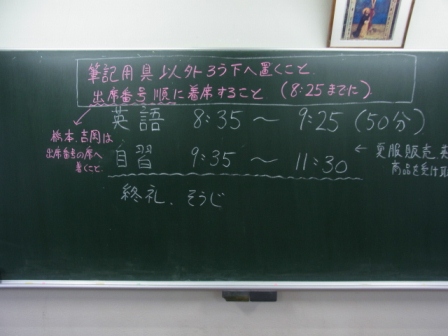 筆記用具以外ろう下へ置くこと.
出席番号順に着席すること (8:25までに)
英語 8:35 〜 9:25 (50分)
橋本、吉岡は
出席番号の席へ
書くこと.
自習 9:35 〜 11:30
← 夏服販売
商品を受け取
終礼、そうじ